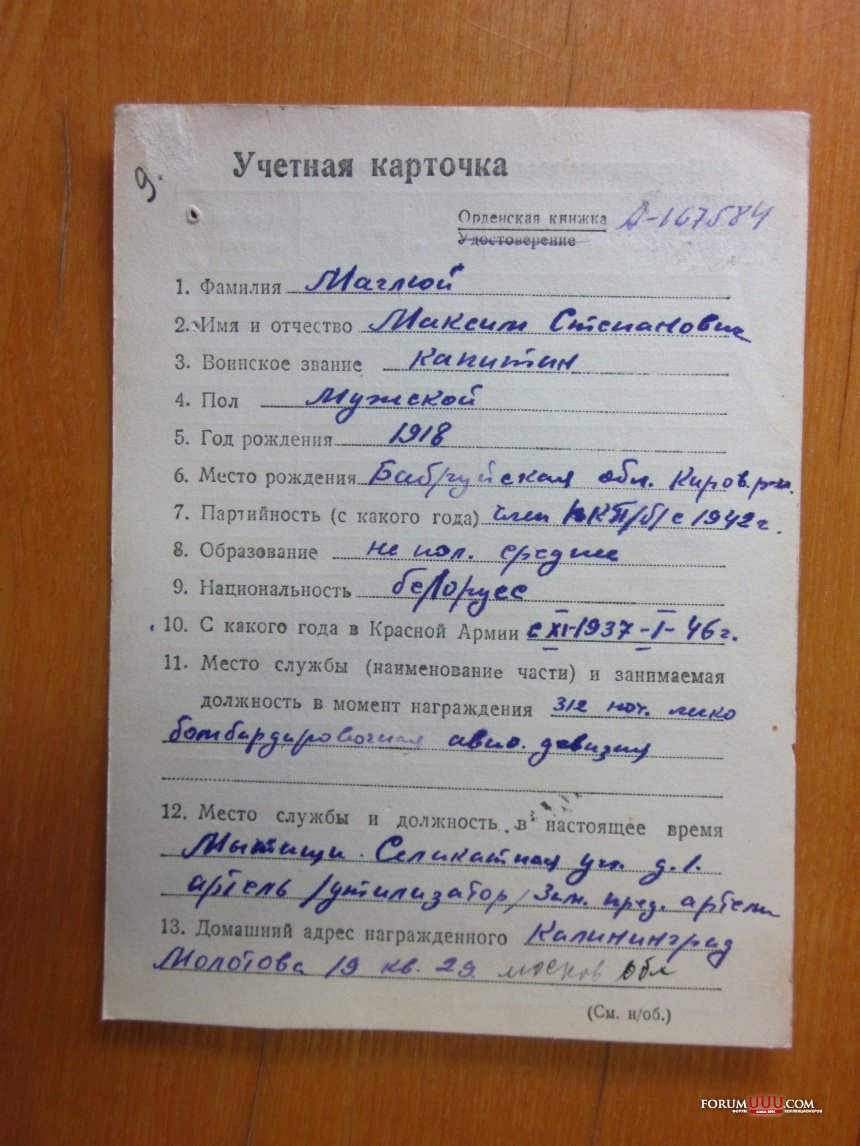 9.
Учетная карточка
Орденская книжка А-167584
Удостоверение
1. Фамилия Маглюй
2. Имя и отчество Максим Степанович
3. Воинское звание капитан
4. Пол Мужской
5. Год рождения 1918
6. Место рождения Бабруйская обл. Киров. р-н.
7. Партийность (с какого года) член ВКП/б/ с 1942 г.
8. Образование не пол. средние
9. Национальность белорусс
10. С какого года в Красной Армии с XI-1937-I-46 г.
11. Место службы (наименование части) и занимаемая
должность в момент награждения 312 ноч. легко
бомбардировочная авио. девизия
12. Место службы и должность в настоящее время
Мытищи Селикатная ул. д. 1.
артель /утилизатор/ Зам. пред. артели
13. Домашний адрес награжденного Калининград
Молотова 19 кв. 29 москов обл
(См. н/об.)
FORUM UUU.COM